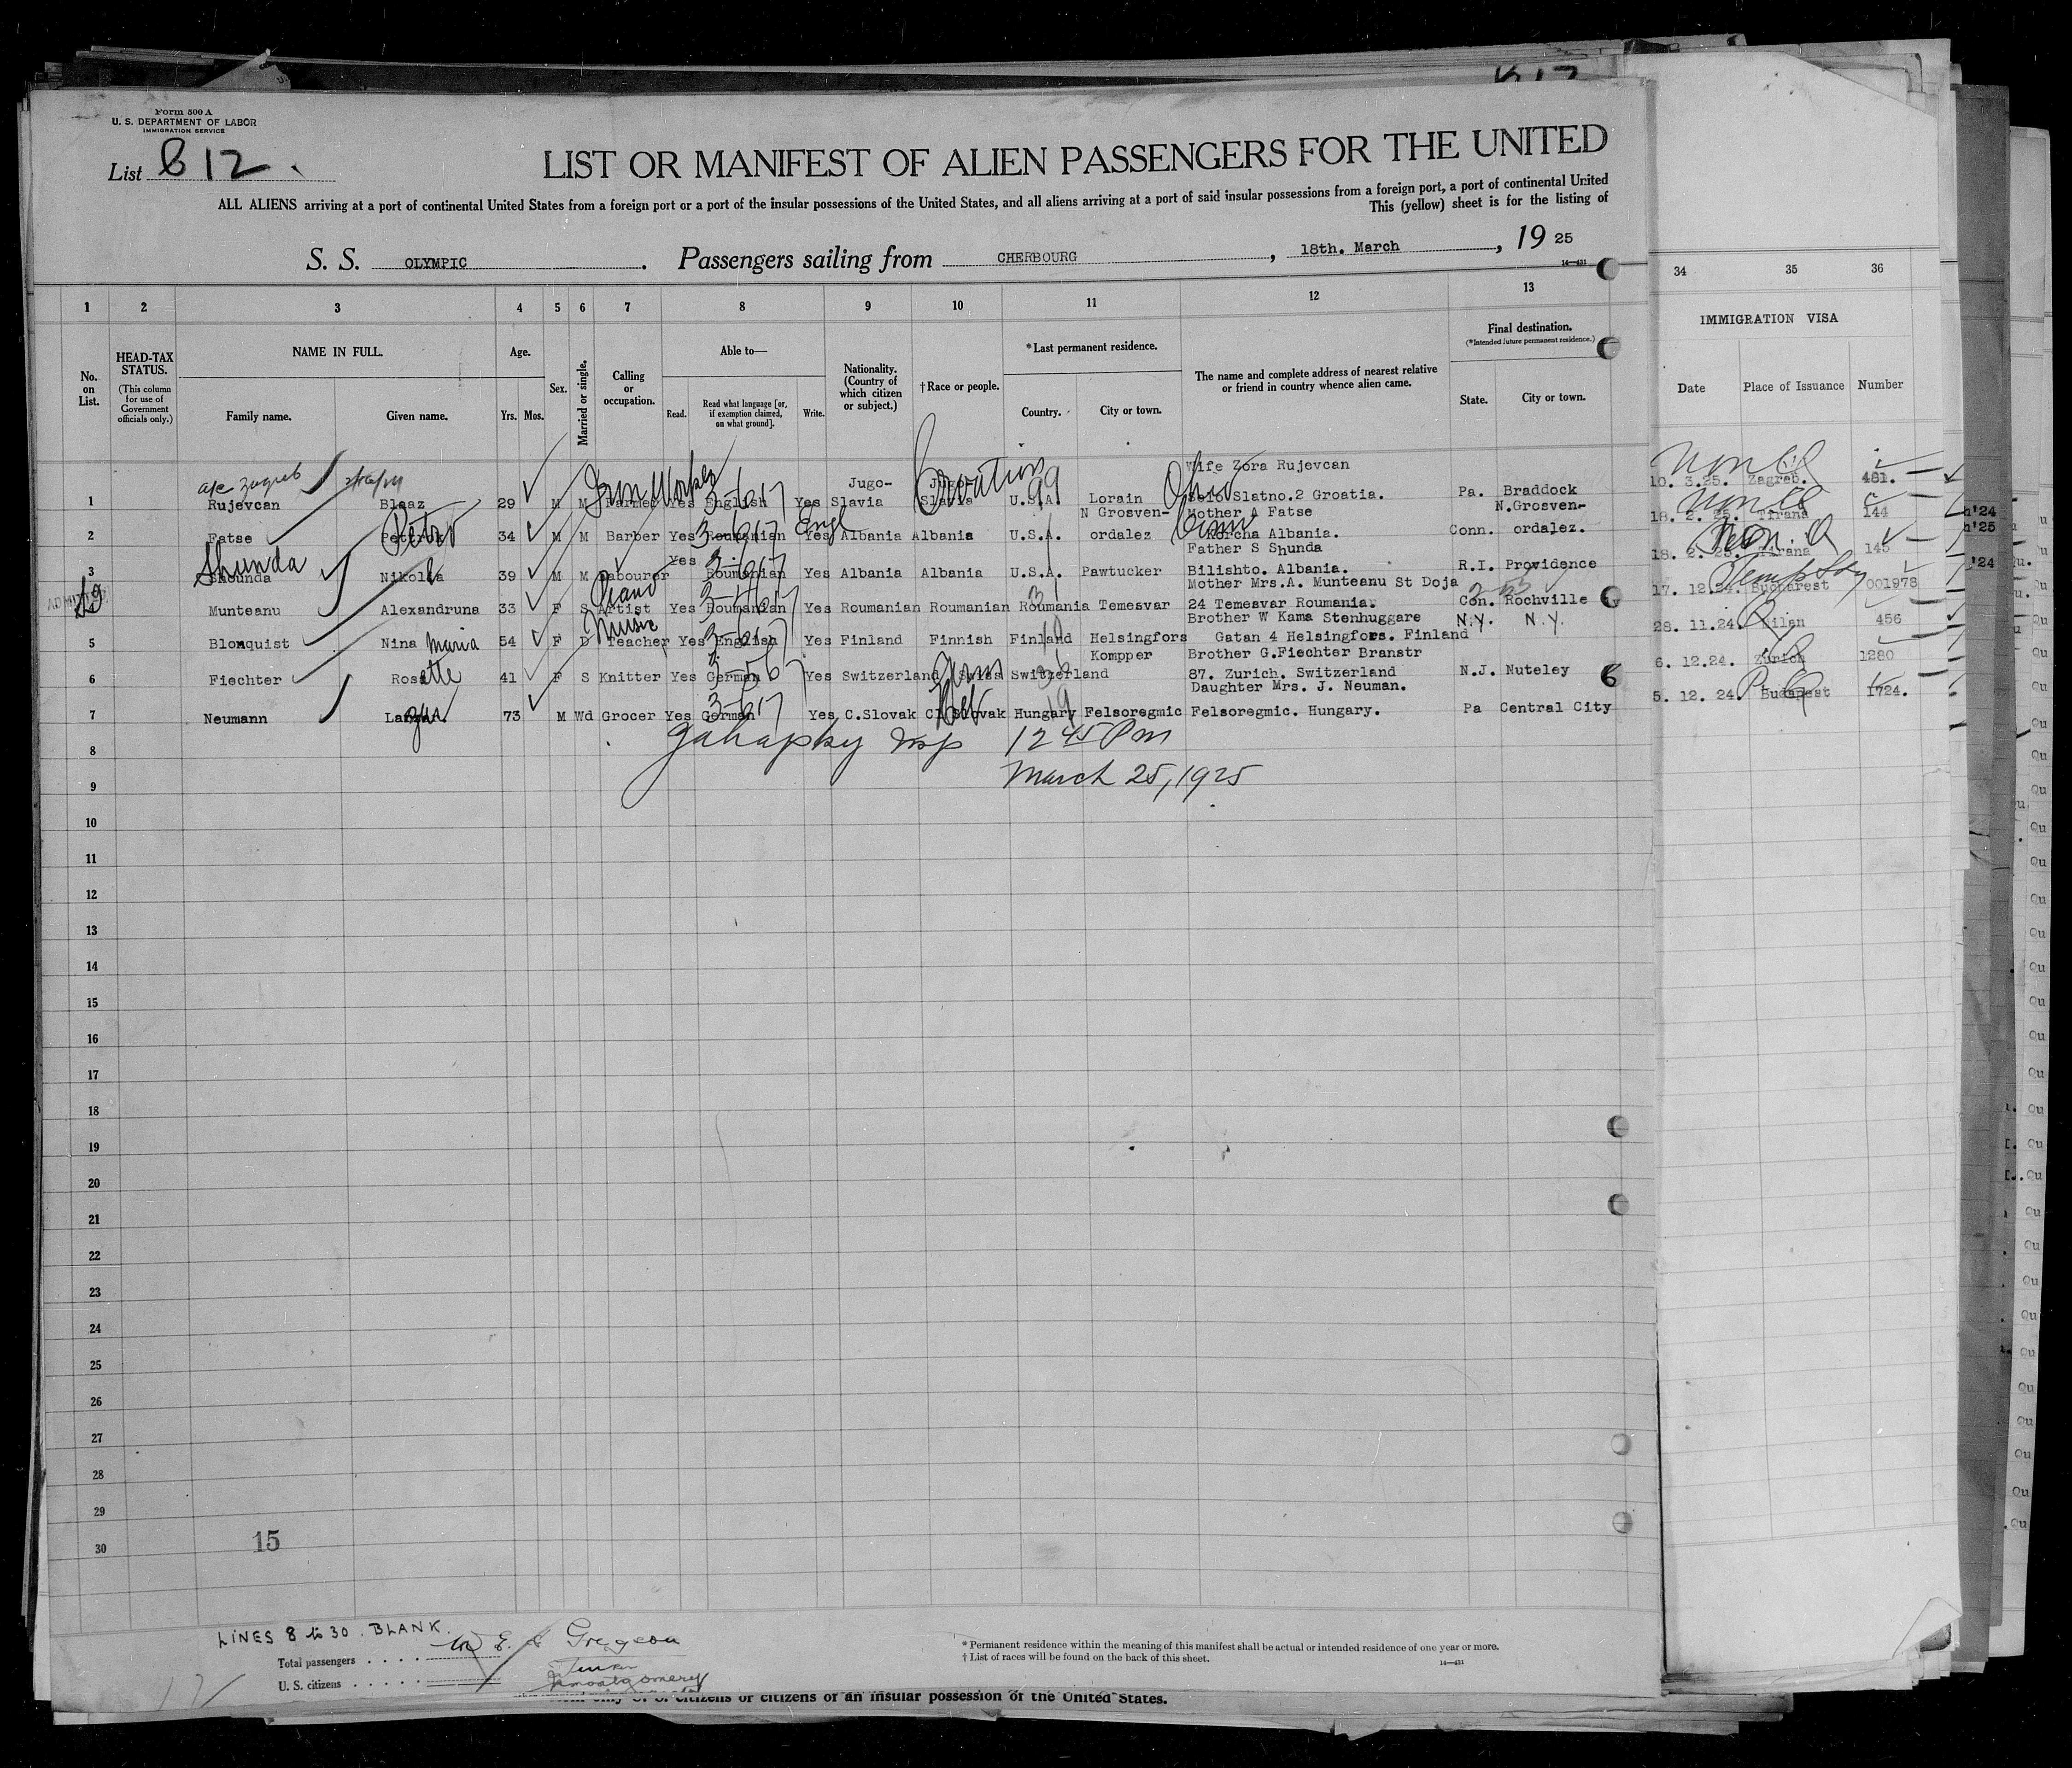 Form 500 A
U. S. DEPARTMENT OF LABOR
IMMIGRATION SERVICE
List 812.
LIST OR MANIFEST OF ALIEN PASSENGERS FOR THE UNITED
ALL ALIENS arriving at a port of continental United States from a foreign port or a port of the insular possessions of the United States, and all aliens arriving at a port of said insular possessions from a foreign port, a port of continental United
This (yellow) sheet is for the listing of
S. S. OLYMPIC. Passengers sailing from CHERBOURG, 18th. March, 19 25
14—431
1 2 3 4 5 6 7 8 9 10 11 12 13 34 35 36
No. on List.
HEAD-TAX STATUS.
(This column for use of Government officials only.)
NAME IN FULL.
Family name. Given name.
Age.
Yrs. Mos.
Sex.
Married or single.
Calling or occupation.
Able to—
Read. Read what language [or, if exemption claimed, on what ground]. Write.
Nationality. (Country of which citizen or subject.)
†Race or people.
*Last permanent residence.
Country. City or town.
The name and complete address of nearest relative or friend in country whence alien came.
Final destination.
(*Intended future permanent residence.)
State. City or town.
IMMIGRATION VISA
Date Place of Issuance Number
Wife Zora Rujevcan
Jugo- Jugo- Croatian Ohio
1 Rujevcan Blaaz 29 M M Farmer Yes English Yes Slavia Slavia U.S.A. Lorain Selo Slatno.2 Groatia. Pa. Braddock 10. 3.25. Zagreb. 481.
N Grosven- Mother A Fatse N.Grosven-
Petro Engl Conn
2 Fatse 34 M M Barber Yes Roumanian Yes Albania Albania U.S.A. ordalez Korcha Albania. Conn. ordalez. 18. 2. 25. Tirana 144
Shunda Father S Shunda
3 Shounda Nikolla 39 M M Labourer Yes Roumanian Yes Albania Albania U.S.A. Pawtucker Bilishto. Albania. R.I. Providence 18. 2. 25. Tirana 145
Piano Mother Mrs.A. Munteanu St Doja
Munteanu Alexandruna 33 F S Artist Yes Roumanian Yes Roumanian Roumanian Roumania Temesvar 24 Temesvar Roumania. Con. Rochville 17. 12.24. Bucharest 001978
Music Brother W Kama Stenhuggare N.Y. N.Y.
5 Blomquist Nina Maria 54 F D Teacher Yes English Yes Finland Finnish Finland Helsingfors Gatan 4 Helsingfors. Finland 28. 11.24. Milan 456
Kompper Brother G.Fiechter Branstr
6 Fiechter Rosette 41 F S Knitter Yes German Yes Switzerland Swiss Switzerland 87. Zurich. Switzerland N.J. Nuteley 6. 12.24. Zurich 1280
Daughter Mrs. J. Neuman.
7 Neumann 73 M Wd Grocer Yes German Yes C.Slovak Slovak Hungary Felsoregmic Felsoregmic. Hungary. Pa Central City 5. 12. 24. Budapest 1724.
8 12 45 Pm
9 March 25, 1925
10
11
12
13
14
15
16
17
18
19
20
21
22
23
24
25
26
27
28
29
30
15
LINES 8 to 30. BLANK.
Total passengers . . . .
U. S. citizens . . . . .
* Permanent residence within the meaning of this manifest shall be actual or intended residence of one year or more.
† List of races will be found on the back of this sheet.
14—431
U. S. citizens or citizens of an insular possession of the United States.